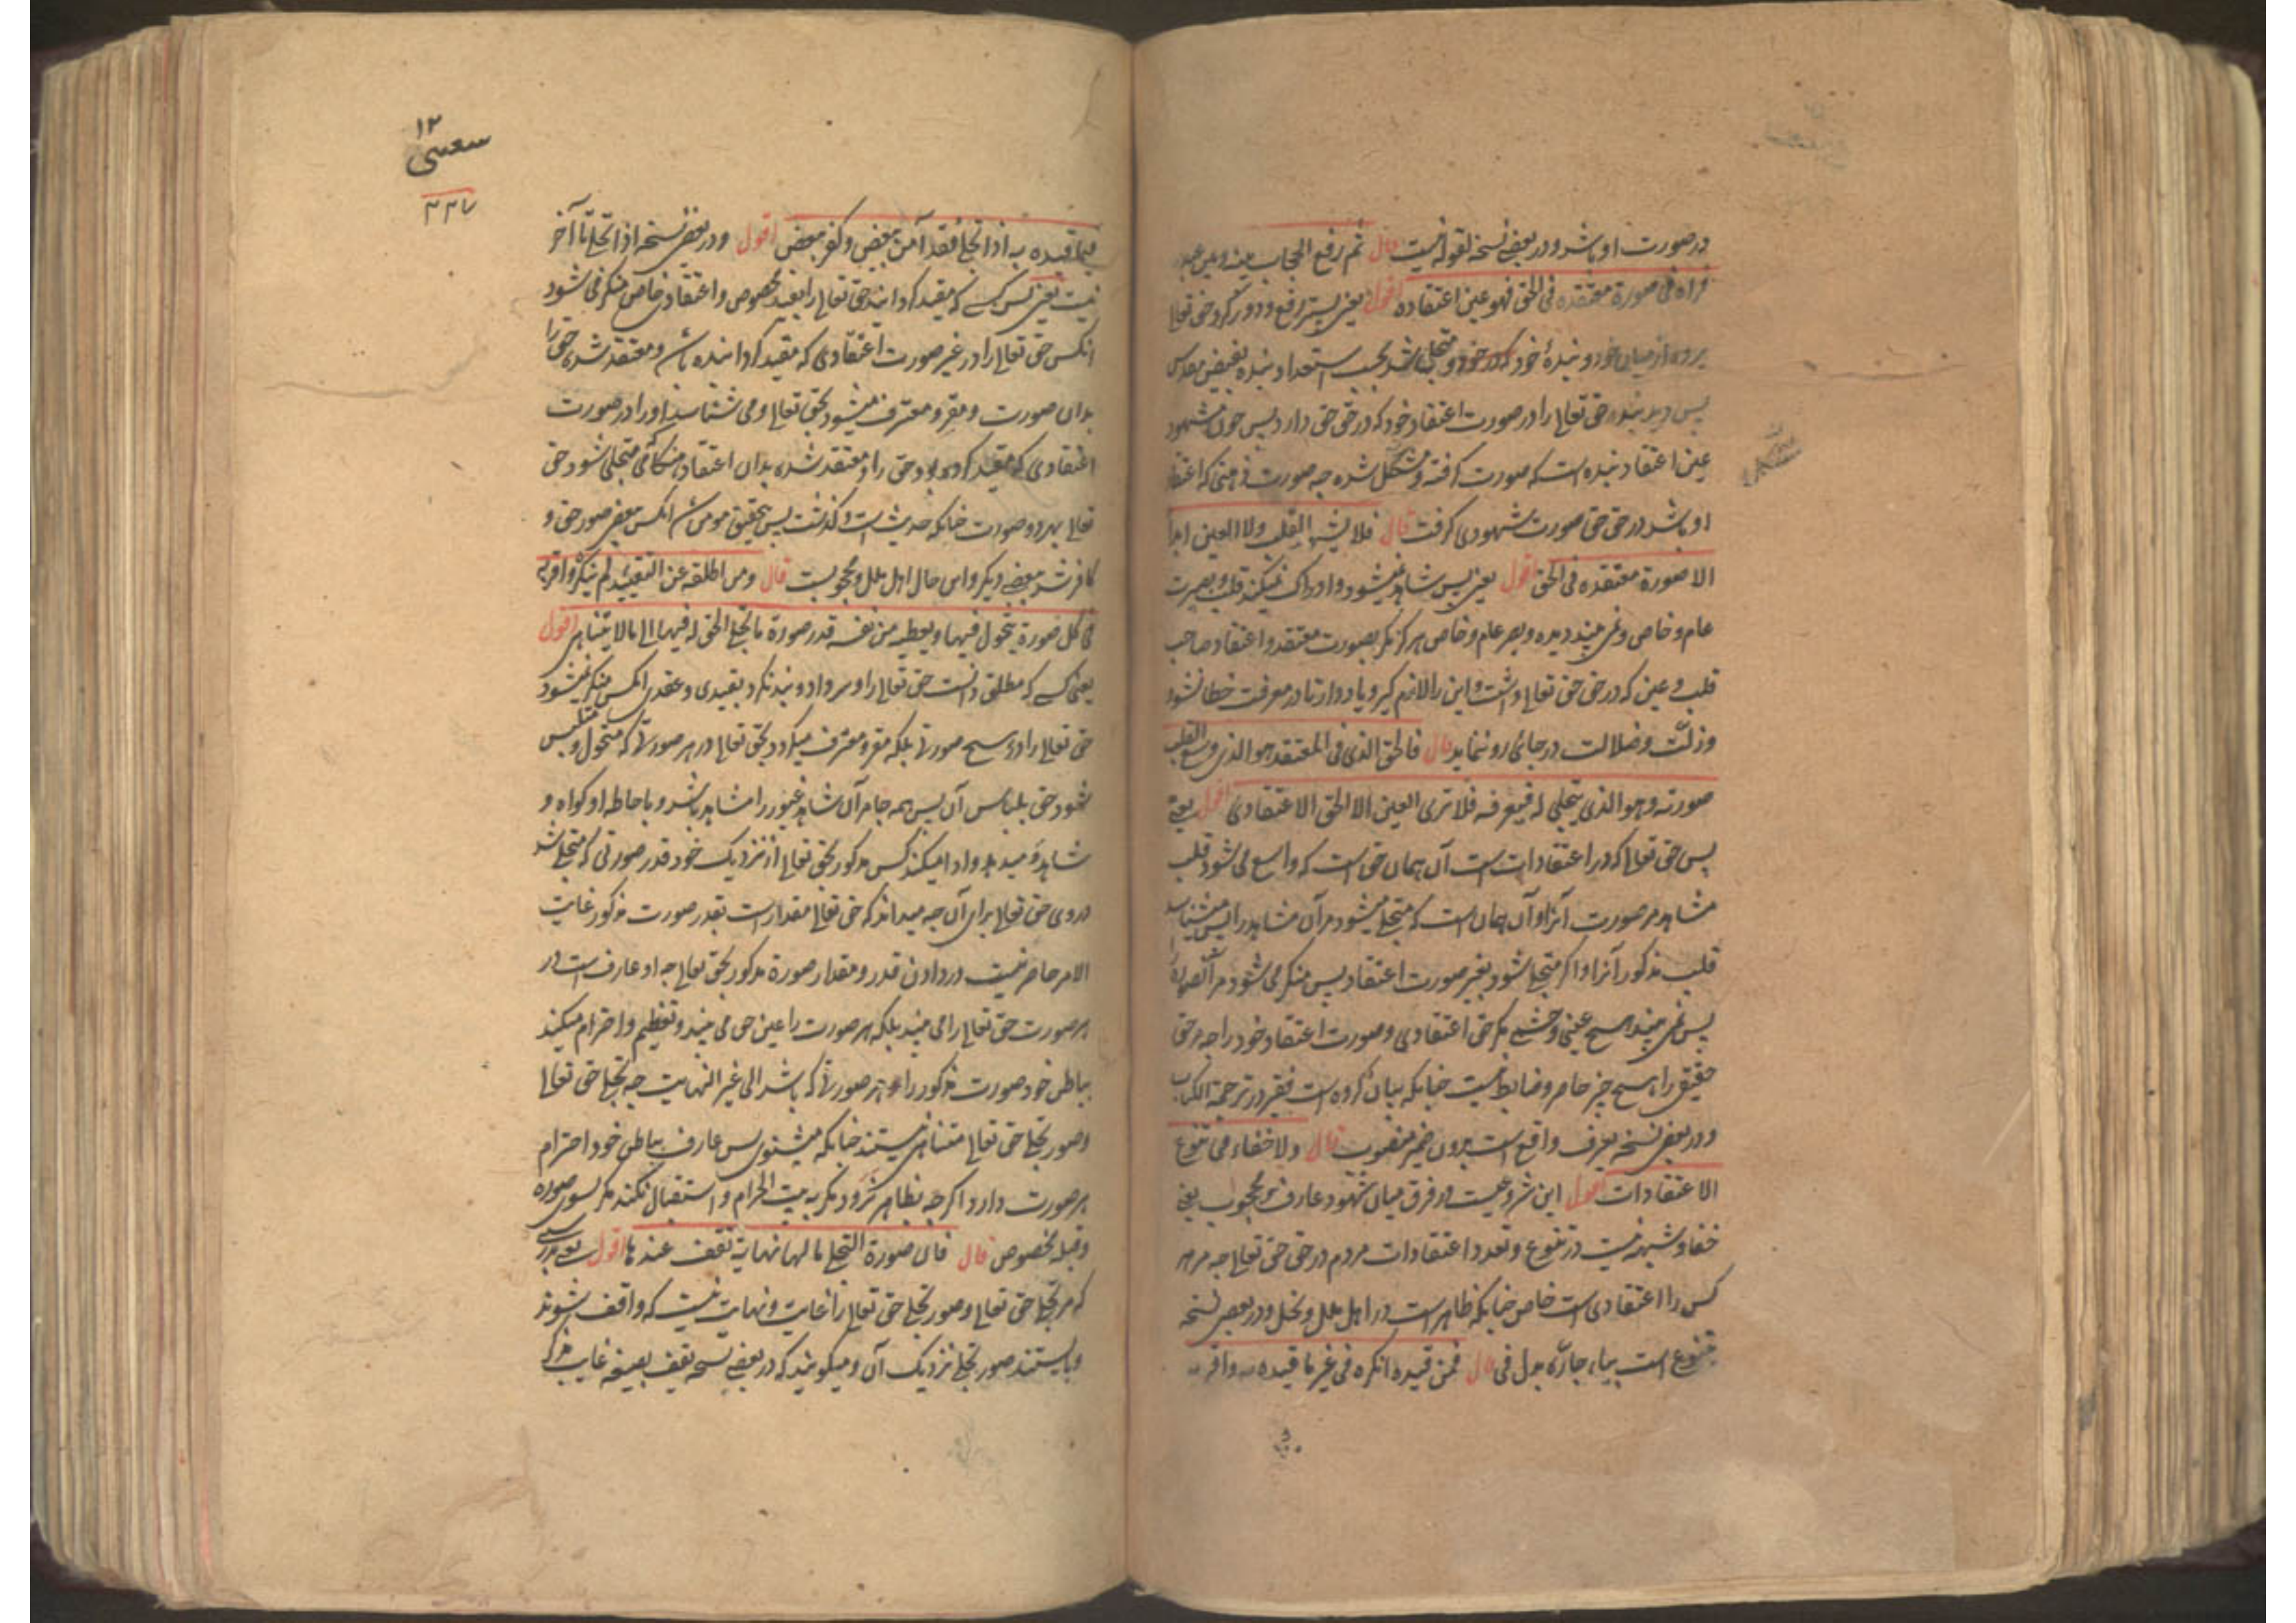 در صورت او باشد و در بعضی نسخه لقوله نیست قال ثم رفع الحجاب بینه و بین عبده
فراه فی صورة معتقده فی الحق فهو عین اعتقاده اقول یعنی پستر رفع و دور کرد حق تعالی
پرده از میان خود و بندهٔ خود که در خود متجلی باشد بحسب استعداد بنده بفیض مقدس
پس دید بنده حق تعالی را در صورت اعتقاد خود که در حق حق دارد پس حق مشهود
عین اعتقاد بنده است که صورت گرفته و متشکل شده چه صورت ذهنی که اعتقاد
او باشد در حق حق صورت شهودی گرفت قال فلا یشهد القلب ولا العین ابدا
الا صورة معتقده فی الحق اقول یعنی پس شاهد نمیشود و ادراک نمیکند قلب و بصیرت
عام و خاص و نمی بیند دیده و بصر عام و خاص هرگز مگر بصورت معتقد و اعتقاد صاحب
قلب و عین که در حق حق تعالی داشت و این را لازم گیر و یاد دار تا در معرفت خطا نشود
و زلت و ضلالت در جائی رو ننماید قال فالحق الذی فی المعتقد هو الذی وسع القلب
صورته و هو الذی یتجلی له فیعرفه فلا تری العین الا الحق الاعتقادی اقول یعنی
پس حق تعالی که در اعتقادات است آن همان حق است که واسع می شود قلب
مشاهد مر صورت آنرا و آن همان است که متجلی میشود مر آن مشاهد را پس میشناسد
قلب مذکور آنرا و اگر متجلی شود بغیر صورت اعتقاد پس منکر می شود مر آنصورة را
پس نمی بیند هیچ عینی و چشمی مگر حق اعتقادی و صورت اعتقاد خود را چه مر حق
حقیقی را هیچ چیز حاصر و ضابط نیست چنانکه بیان کرده است فقیر در ترجمة الکتاب
و در بعضی نسخه یعرف واقع است بدون ضمیر منصوب قال ولا خفاء فی تنوع
الاعتقادات اقول این شروعیست در فرق میان شهود عارف و محجوب یعنی
خفا و شبهه نیست در تنوع و تعدد اعتقادات مردم در حق حق تعالی چه مر هر
کس را اعتقادی است خاص چنانکه ظاهر است در اهل ملل و نحل و در بعضی نسخه
بتنوع است بباء جاره بدل فی قال فمن قیده انکره فی غیر ما قیده به و اقر به
فیما قیده به اذا تجلی فقد آمن ببعض و کفر ببعض اقول و در بعضی نسخه اذا تجلی تا آخر
نیست یعنی پس کسے که مقید گردانید حق تعالی را بقید مخصوص و اعتقاد خاص منکر می شود
آنکس حق تعالی را در غیر صورت اعتقادی که مقید گردانیده بآن و معتقد شده حق را
بدان صورت و مقر و معترف میشود بحق تعالی و می شناسد او را در صورت
اعتقادی که مقید کرده بود حق را و معتقد شده بدان اعتقاد هنگامی متجلی شود حق
تعالی بهر دو صورت چنانکه حدیث است و گذشت پس بتحقیق مومن بآن انکس بعضی صور حق و
کافر شد ببعضے دیگر و این حال اهل ملل و محجوبست قال و من اطلقه عن التقیید لم ینکره و اقر به
فی کل صورة یتحول فیها و یعطیه من نفسه قدر صورة ما تجلی الحق له فیها الی ما لا یتناهی اقول
یعنی کسے که مطلق دانست حق تعالی را و سر داد و بند نکرد بقیدی و عقدی انکس منکر نمیشود
حق تعالی را در هیچ صورتی بلکه مقر و معترف میگردد بحق تعالی در هر صورتی که متحول و متلبس
شود حق بلباس آن پس همه جا مر آن شاهد غیور را مشاهد باشد و باحاطه او گواه و
شاهد و میدهد و ادا میکند کس مذکور بحق تعالی از نزدیک خود قدر صورتی که متجلی شد
در وی حق تعالی برای آن چه میداند که حق تعالی مقدار است بقدر صورت مذکور غایت
الامر حاصر نیست در دادن قدر و مقدار صورة مذکور بحق تعالی چه او عارف است در
هر صورت حق تعالی را می بیند بلکه هر صورت را عین حق می بیند و تعظیم و احترام میکند
بباطن خود صورت مذکور را و هر صورتی که باشد الی غیر النهایت چه تجلی حق تعالی
و صور تجلی حق تعالی متناهی نیستند چنانکه میشنوی پس عارف بباطن خود احترام
هر صورت دارد اگر چه بظاهر نگرود مگر به بیت الحرام و استقبال نکند مگر بسوی صوره
و قبله مخصوص قال فان صورة التجلی ما لها نهایة تقف عندها اقول یعنی
که مر تجلی حق تعالی و صور تجلی حق تعالی را غایت و نهایت نیست که واقف شوند
و بایستند صور تجلی نزدیک آن و میگویند که در بعضے نسخه یقف بصیغه غایب مذکر